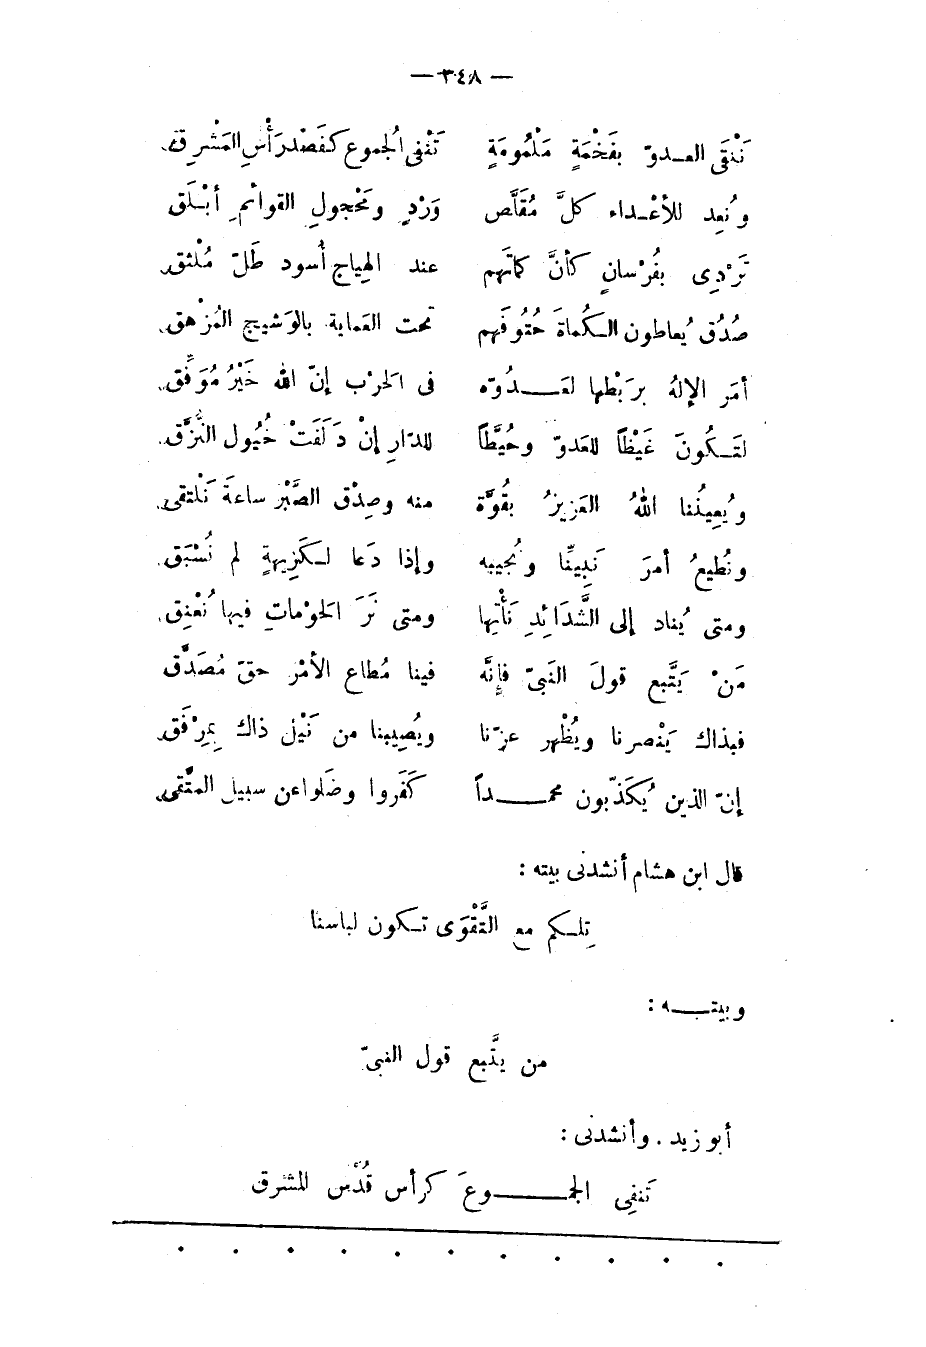 — ٣٤٨ —
نَلْقَى العــدوّ بفَخْمَةٍ مَلْمُومَةٍ تَنْفى الُجموع كـفَصْد رَأْسِ المَشْرِق
ونُعِد للأعْـداء كلَّ مُقَلَّص وَرْدٍ ومَحْجولِ القوائمِ أبْـلَق
تَرْدِى بفُرْسانٍ كأنَّ كماتَهم عند الهِياج أُسود طَلّ مُلْثق
صُدُق يُعاطون الـكُماةَ حُتُوفَهم تحت العَماية بالوَشيج المُزْهق
أمَر الإلهُ بربَطْها لعَــــدُوّه فى الحرْب إنّ الله خَيْرُ مُوَفِّق
لتَـكُونَ غَيْظاً للعَدوّ وحُيَّطاً للدّارِ إنْ دَلَفَتْ خُيُول النُّزَّق
ويُعِينُنا اللهُ العَزيزُ بقُوَّة منه وصِدْق الصَّبْر ساعةَ نَلْتقى
ونُطيعُ أمرَ نَبِيِّنا ونُجيبه وإذا دَعا لـكَرِيهةٍ لم نُسْبَق
ومتى يُناد إلى الشَّدَائِدِ نَأْتِها ومتى نَرَ الَحوْماتِ فيها نُعْنِق
مَنْ يَتَّبع قولَ النَبىّ فإنَّه فينا مُطاع الأمْر حقّ مُصَدَّق
فبذاك يَنْصرنا ويُظْهر عزّنا ويُصِيبنا من نَيْل ذاك بِمِرْفَق
إنّ الذين يُكَذّبون محمــــداً كَفَروا وضَلوا عن سبيل المتَّقى
قال ابن هشام أنشدنى بيته :
تِلـكم مع التَّقْوَى تـكون لباسنا
وبيتـــه :
من يتَّبع قول النبىّ
أبو زيد . وأنشدنى :
تَنفِى الجمـــــوعَ كرأس قُدْس المشرق